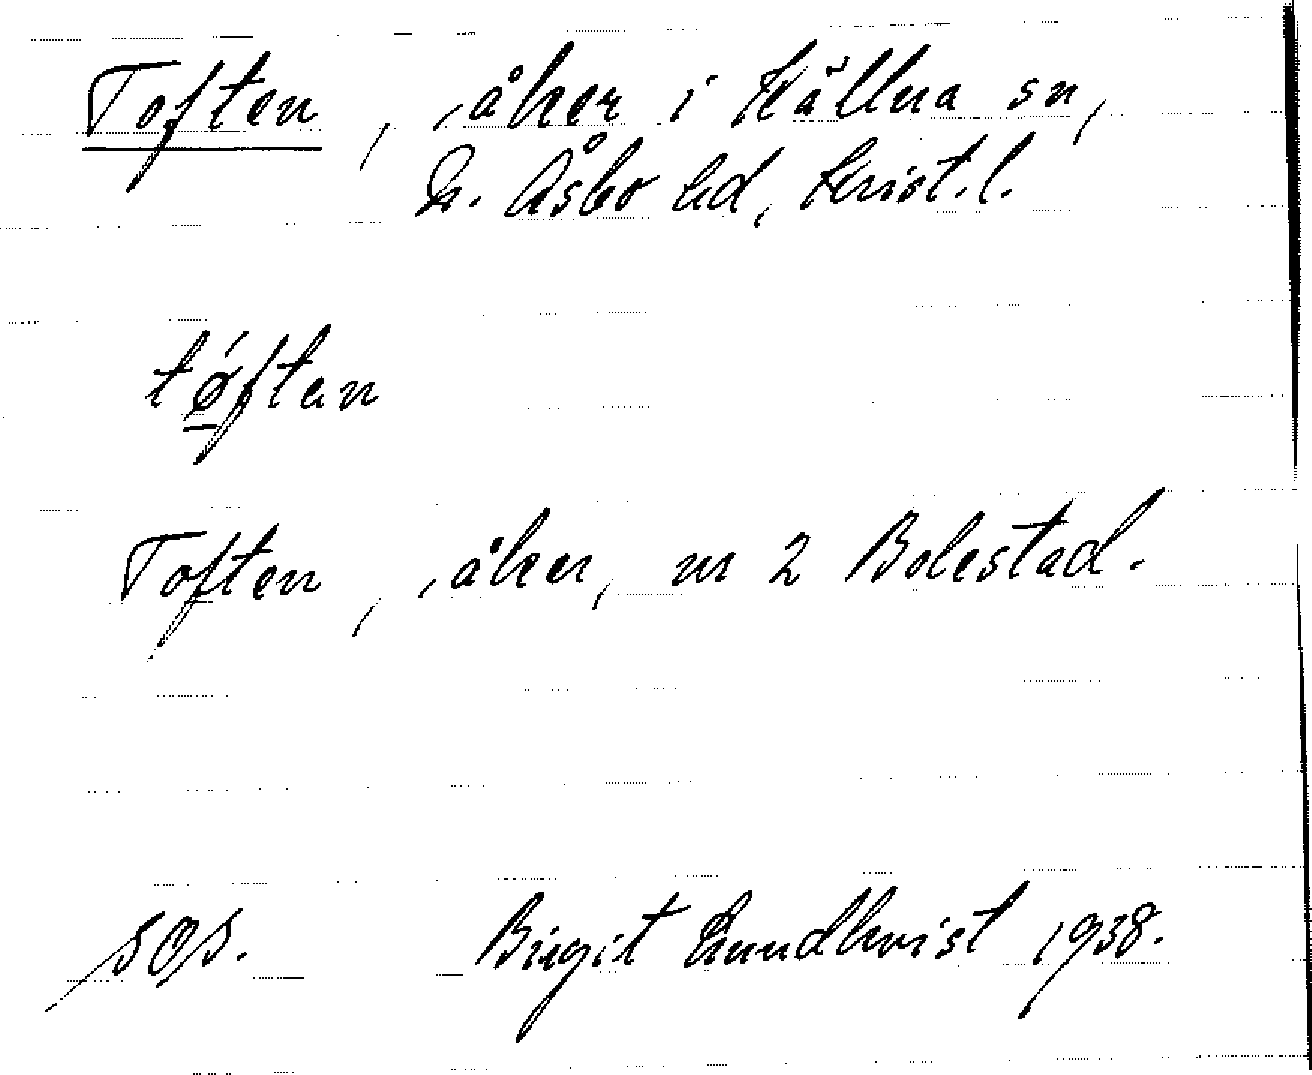 Toften, åker i Källna sn,
N. Åsbo hd, Krist. l.
tǿften
Toften, åker, nr 2 Bolestad.
SOS. Birgit Lundkvist 1938.